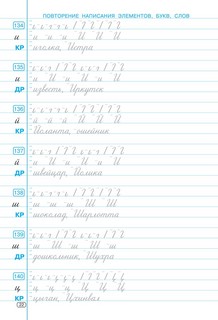 ПОВТОРЕНИЕ НАПИСАНИЯ ЭЛЕМЕНТОВ, БУКВ, СЛОВ
134
и и и и И И И
КР иголка, Истра
135
и и И и И и И
ДР известь, Иркутск
136
й й й й Й Й Й
КР Йоланта, ошейник
137
й й Й й Й й Й
ДР швейцар, Йолика
138
ш ш ш ш Ш Ш
КР шоколад, Шарлотта
139
ш Ш ш Ш Ш ш
ДР дошкольник, Шухра
140
ц ц ц Ц Ц Ц
КР цыган, Цхинвал
22